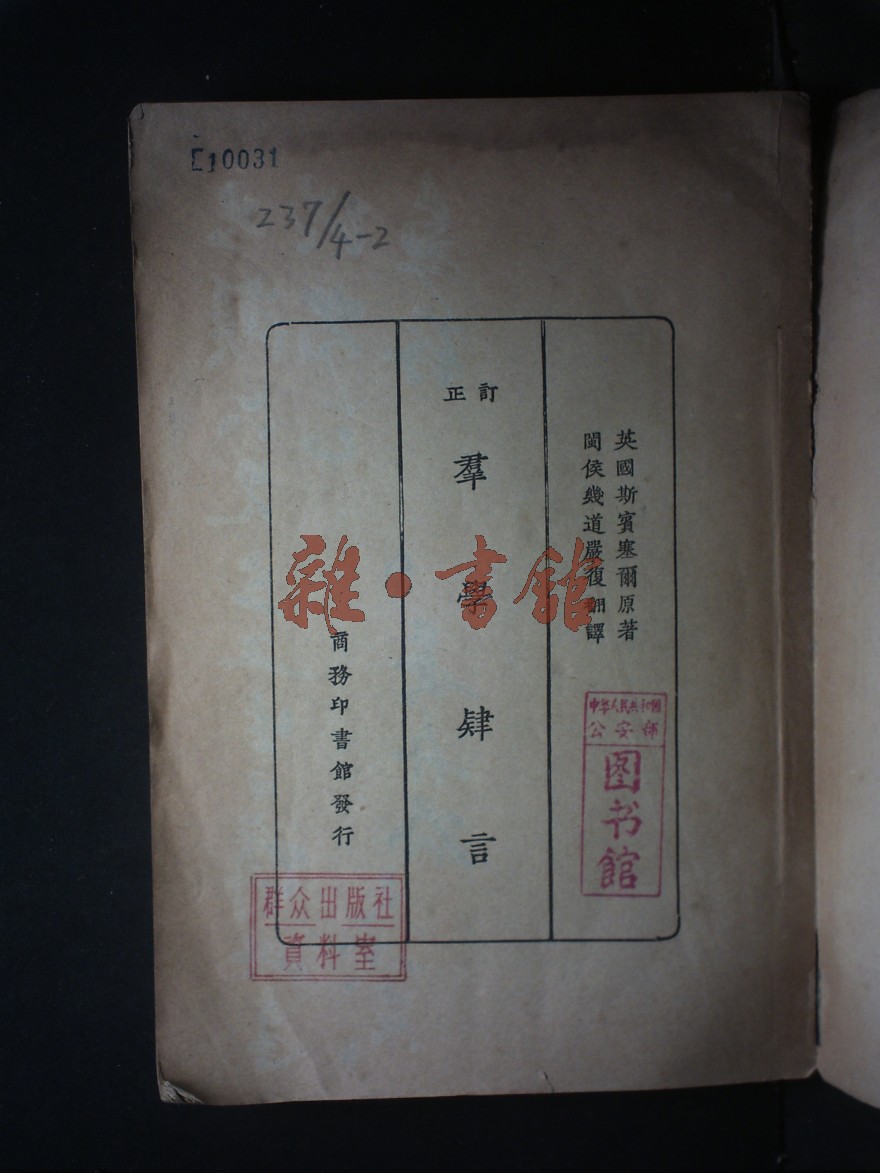 [10031
237/4-2
英國斯賓塞爾原著
閩侯幾道嚴復翻譯
訂正
羣學肄言
商務印書館發行
雜·書館
中华人民共和国
公安部
图书館
群众出版社
資料室